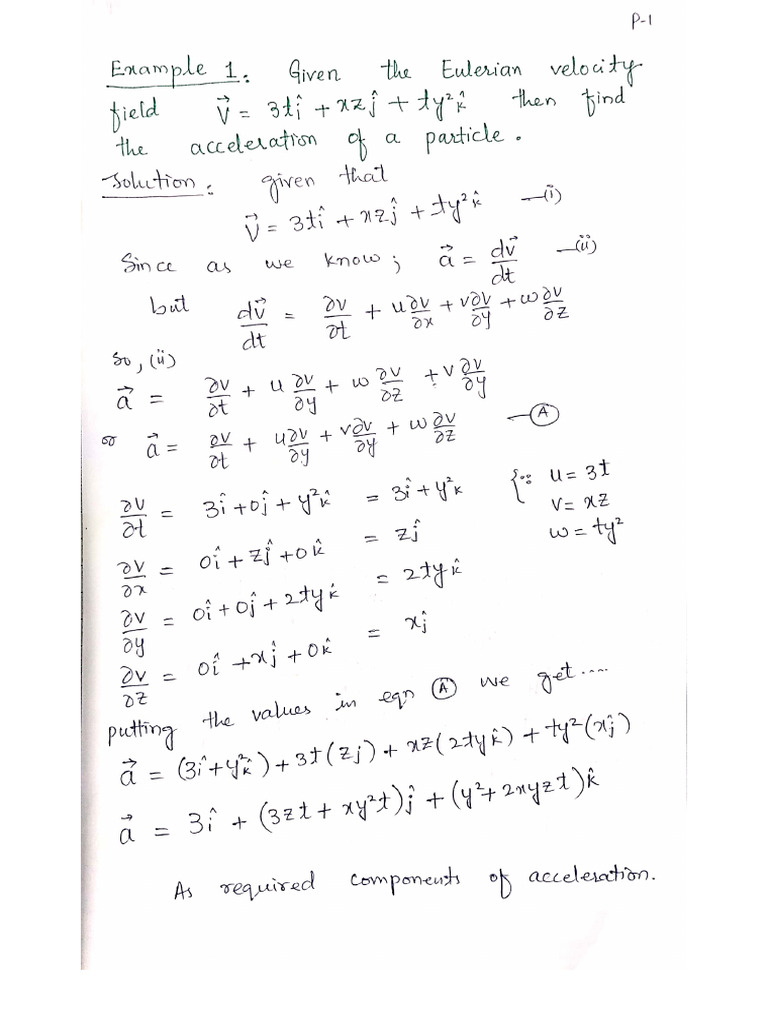 P-1
Example 1: Given the Eulerian velocity
field V⃗ = 3tî + xzĵ + ty²k̂ then find
the acceleration of a particle.
Solution: given that
V⃗ = 3tî + xzĵ + ty²k̂ —(i)
Since as we know; a⃗ = dv⃗/dt —(ii)
but dv⃗/dt = ∂v/∂t + u∂v/∂x + v∂v/∂y + w∂v/∂z
so, (ii)
a⃗ = ∂v/∂t + u ∂v/∂y + w ∂v/∂z + v ∂v/∂y
or a⃗ = ∂v/∂t + u∂v/∂y + v∂v/∂y + w ∂v/∂z —(A)
∂v/∂t = 3î + 0ĵ + y²k̂ = 3î + y²k̂ {∵ u = 3t
v = xz
∂v/∂x = 0î + zĵ + 0k̂ = zĵ w = ty²
∂v/∂y = 0î + 0ĵ + 2tyk̂ = 2tyk̂
∂v/∂z = 0î + xĵ + 0k̂ = xĵ
putting the values in eqn (A) we get....
a⃗ = (3î + y²k̂) + 3t(zj) + xz(2tyk̂) + ty²(xĵ)
a⃗ = 3î + (3zt + xy²t)ĵ + (y² + 2xyzt)k̂
As required components of acceleration.